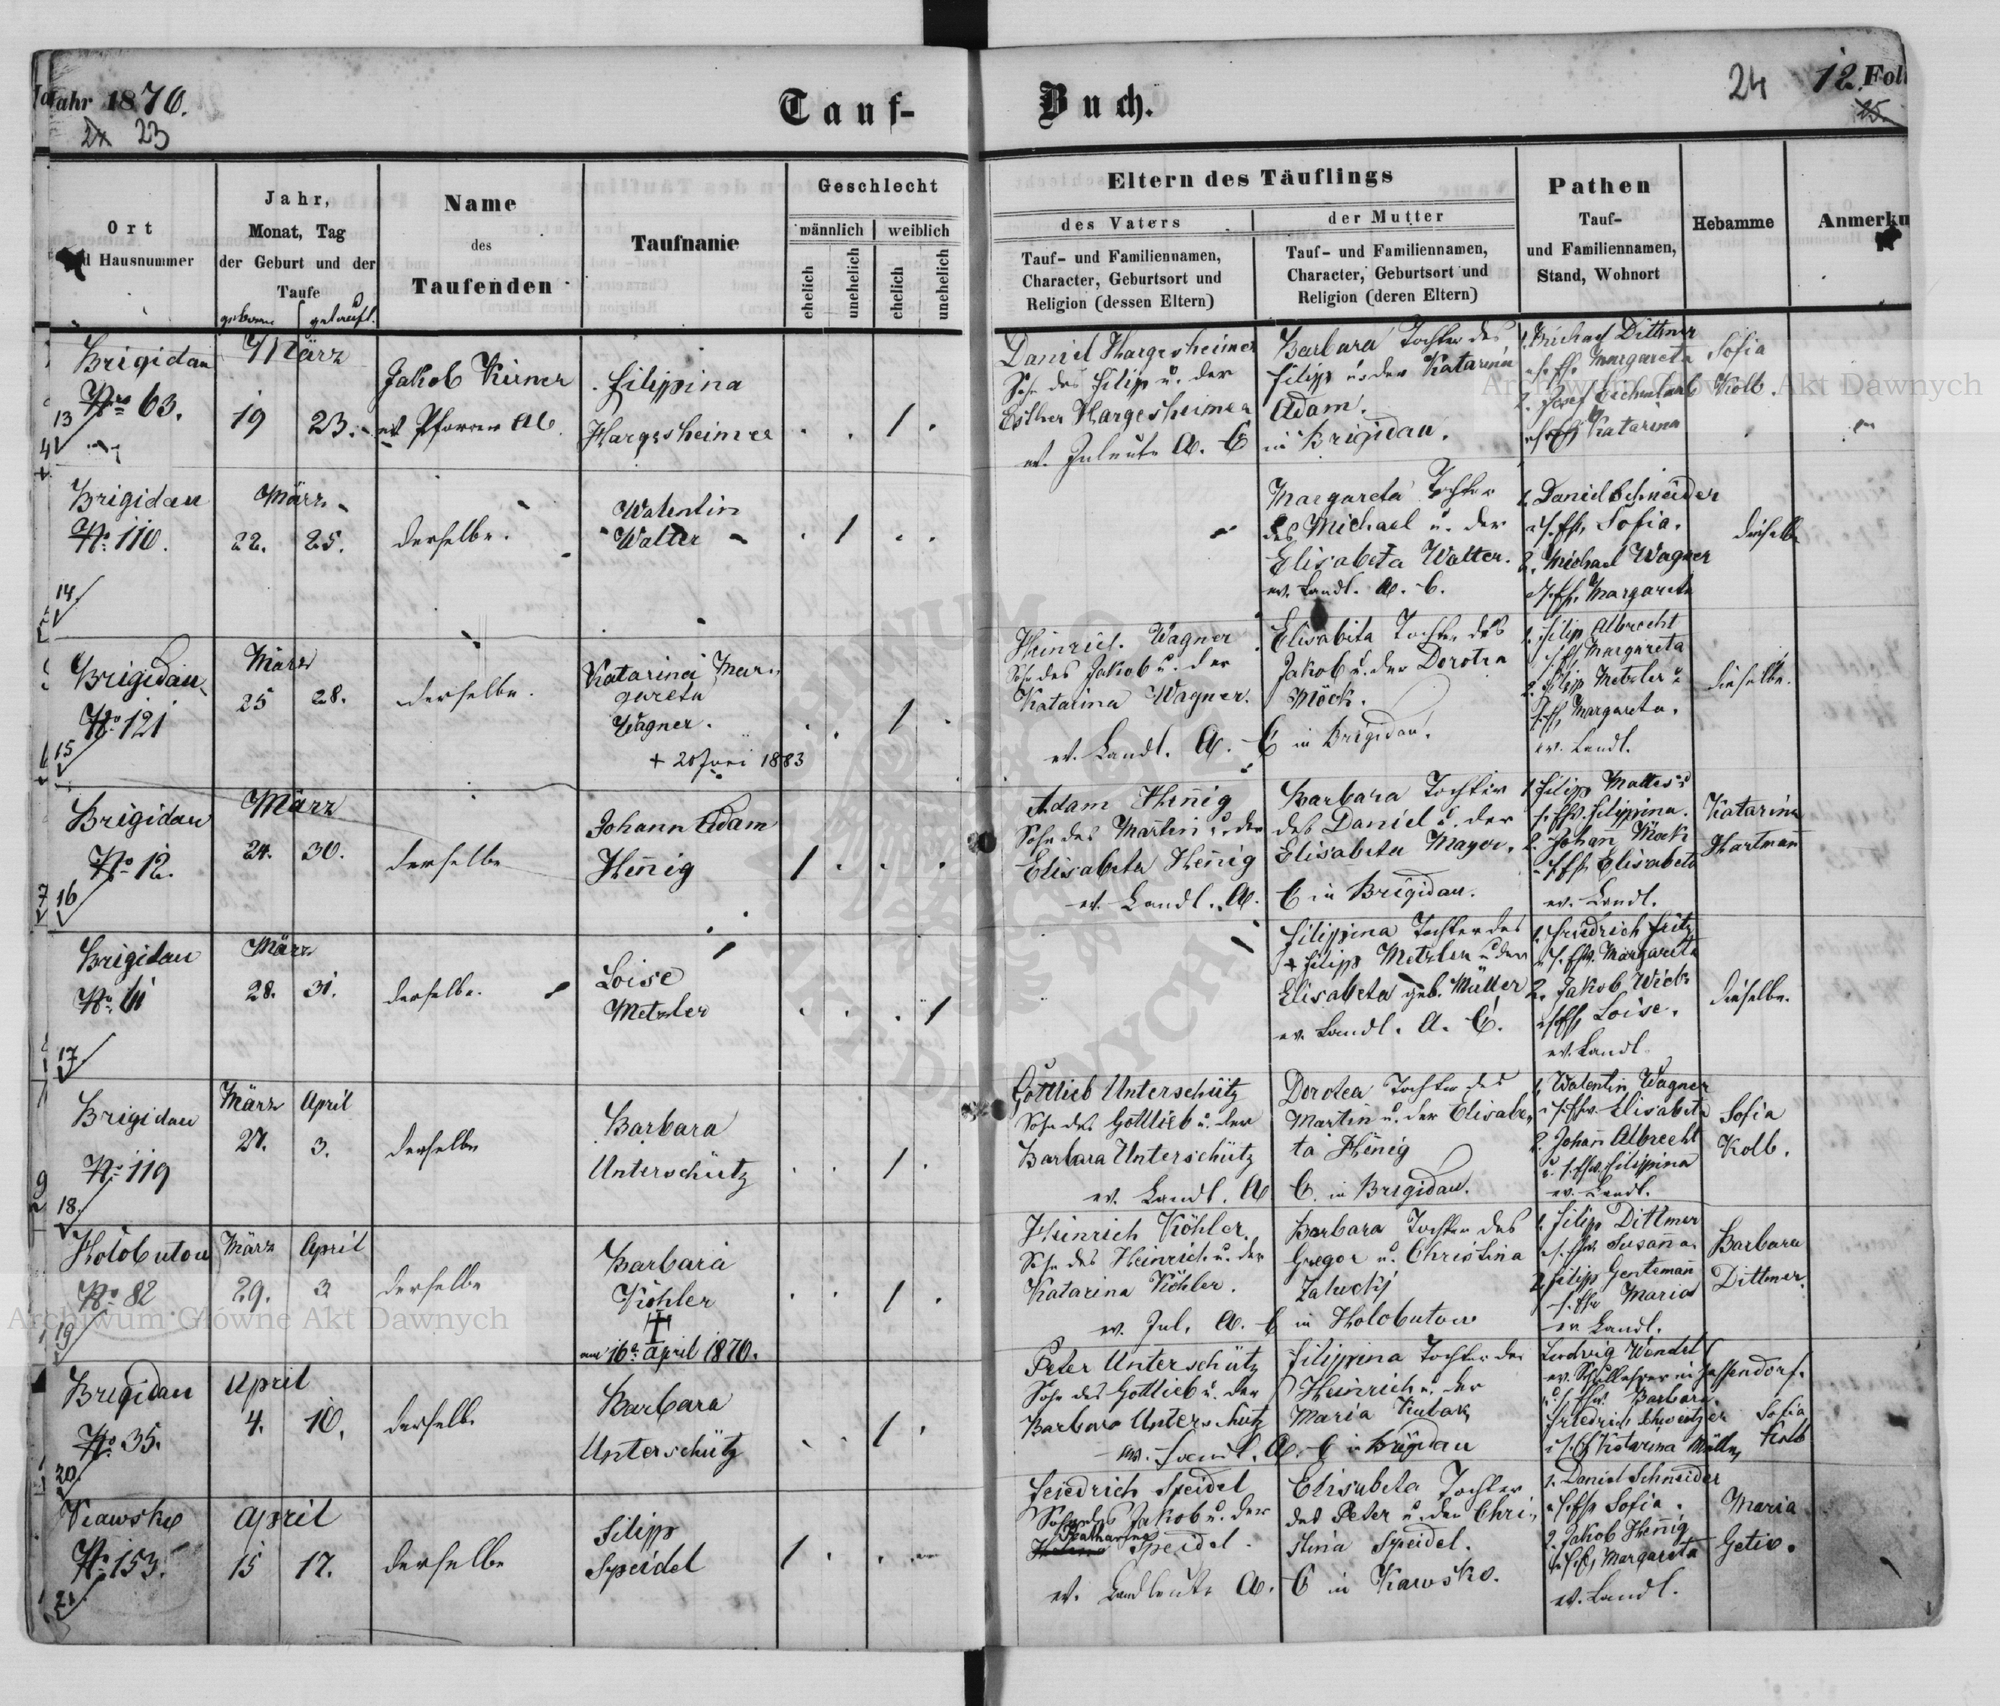 Jahr 1870.
23
Tauf-
Buch.
24
12. Fol
25.
Ort
d Hausnummer
Jahr,
Monat, Tag
der Geburt und der
Taufe
geboren getauft.
Name
des
Taufenden
Taufname
Geschlecht
männlich weiblich
ehelich
unehelich
ehelich
unehelich
Eltern des Täuflings
des Vaters
Tauf- und Familiennamen,
Character, Geburtsort und
Religion (dessen Eltern)
der Mutter
Tauf- und Familiennamen,
Character, Geburtsort und
Religion (deren Eltern)
Pathen
Tauf-
und Familiennamen,
Stand, Wohnort
Hebamme
Anmerku
13
Brigidau
No 63.
März
19 23.
Jakob Kirner
ev. Pfarrer AC.
Filippina
Hargesheimer
Daniel Hargesheimer
Sohn des Filip u. der
Esther Hargesheimer
ev. A. C
Barbara Tochter des
Filipp u. der Katarina
Adam.
in Brigidau.
1. Michael Dittmer
Margareta
2. Josef
Katarina
Sofia
Kolb.
14.
Brigidau
No. 110.
März
22. 25.
derselbe.
Walentin
Walter
Margareta Tochter
des Michael u. der
Elisabeta Walter.
ev. Landl. A. C.
1. Daniel Schneider
Sofia.
2. Michael Wagner
Margareta
dieselbe
15
Brigidau
No 121
März
25 28.
derselbe.
Katarina Mar
gareta
Wagner.
+ 20 Juni 1883
Heinrich Wagner
Sohn des Jakob u. der
Katarina Wagner.
ev. Landl. A. C
Elisabeta Tochter des
Jakob u. der Dorotea
Möck.
in Brigidau.
1. Filip Albrecht
Margareta
2. Filipp Metzler u
Margareta.
ev. Landl.
dieselbe.
16
Brigidau
No 12.
März
24. 30.
derselbe
Johann Adam
Hennig
Adam Hennig
Sohn des Martin u. der
Elisabeta Hennig
ev. Landl. A.
Barbara Tochter
des Daniel u. der
Elisabeta Mayer.
C in Brigidau.
1. Filipp Mattes u
Filippina.
2. Johann Möck
Elisabeta
ev. Landl.
Katarina
Hartman
17.
Brigidau
No. 61
März
28. 31.
derselbe.
Loise
Metzler
Filippina Tochter des
+ Filipp Metzler u der
Elisabeta geb. Müller
ev. Landl. A. C.
1. Friedrich Fritz
Margareta
2. Jakob Wick
Loise.
ev. Landl.
dieselbe.
18.
Brigidau
No. 119
März April
27. 3.
derselbe
Barbara
Unterschütz
Gottlieb Unterschütz
Sohn des Gottlieb u. der
Barbara Unterschütz
ev. Landl. A
Dorotea Tochter des
Martin u. der Elisabe
ta Hennig
C. in Brigidau.
1. Walentin Wagner
Elisabeta
2. Johann Albrecht
Filippina
ev. Landl.
Sofia
Kolb.
19
Holobutow
No. 82
März April
29. 3
derselbe
Barbara
Köhler
am 16. April 1870.
Heinrich Köhler.
Sohn des Heinrich u. der
Katarina Köhler.
ev. A. C
Barbara Tochter des
Gregor u. Christina
Zalucky
in Holobutow
1. Filipp Dittmer
Susanna.
2. Filipp Gentemann
Maria
ev Landl.
Barbara
Dittmer.
20.
Brigidau
No. 35.
April
4. 10.
derselbe
Barbara
Unterschütz
Peter Unterschütz
Sohn des Gottlieb u. der
Barbara Unterschütz
A. C in Brigidau
Filippina Tochter des
Heinrich u. der
Maria Kubak
Ludwig Wendel
ev. Schullehrer in
Barbara.
Friedrich Schweitzer
Katarina Müller
Sofia
Kolb
21
Kawsko
No. 153.
April
15 17.
derselbe
Filipp
Speidel
Friedrich Speidel
Sohn des Jakob u. der
Katharina
Speidel.
ev. Landleute A.
Elisabeta Tochter
des Peter u. der Chri
stina Speidel.
C in Kawsko.
1. Daniel Schneider
Sofia.
2. Jakob Hennig
Margareta
ev. Landl.
Maria
Getiv.
Archiwum Główne Akt Dawnych
Archiwum Główne Akt Dawnych